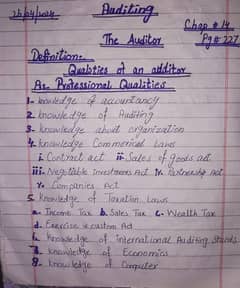 24/04/2024 Auditing
Chap # 14
The Auditor Pg # 227
Definition:-
Qualities of an additor
A:- Professional Qualities
1- knowledge of accountancy
2- knowledge of Auditing
3- knowledge about organization
4- knowledge Commerical Laws
i. Contract act ii- Sales of goods act
iii- Negotiable Investments Act iv- Partnership Act
v. Companies Act
5- knowledge of Taxation Laws
a- Income Tax b. Sales Tax c- Wealth Tax
d. Exercise & custom Act
6. knowledge of international Auditing Stands
7. knowledge of Economics
8- knowledge of Computer